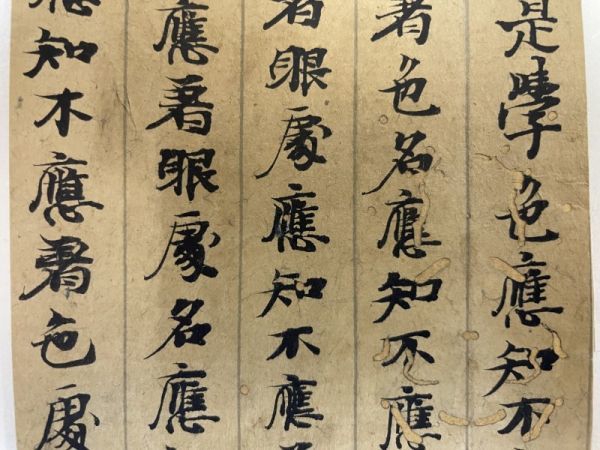 是學色應知不應
著色名應知不應
著眼處應知不應
應著眼處名應
應知不應著色處